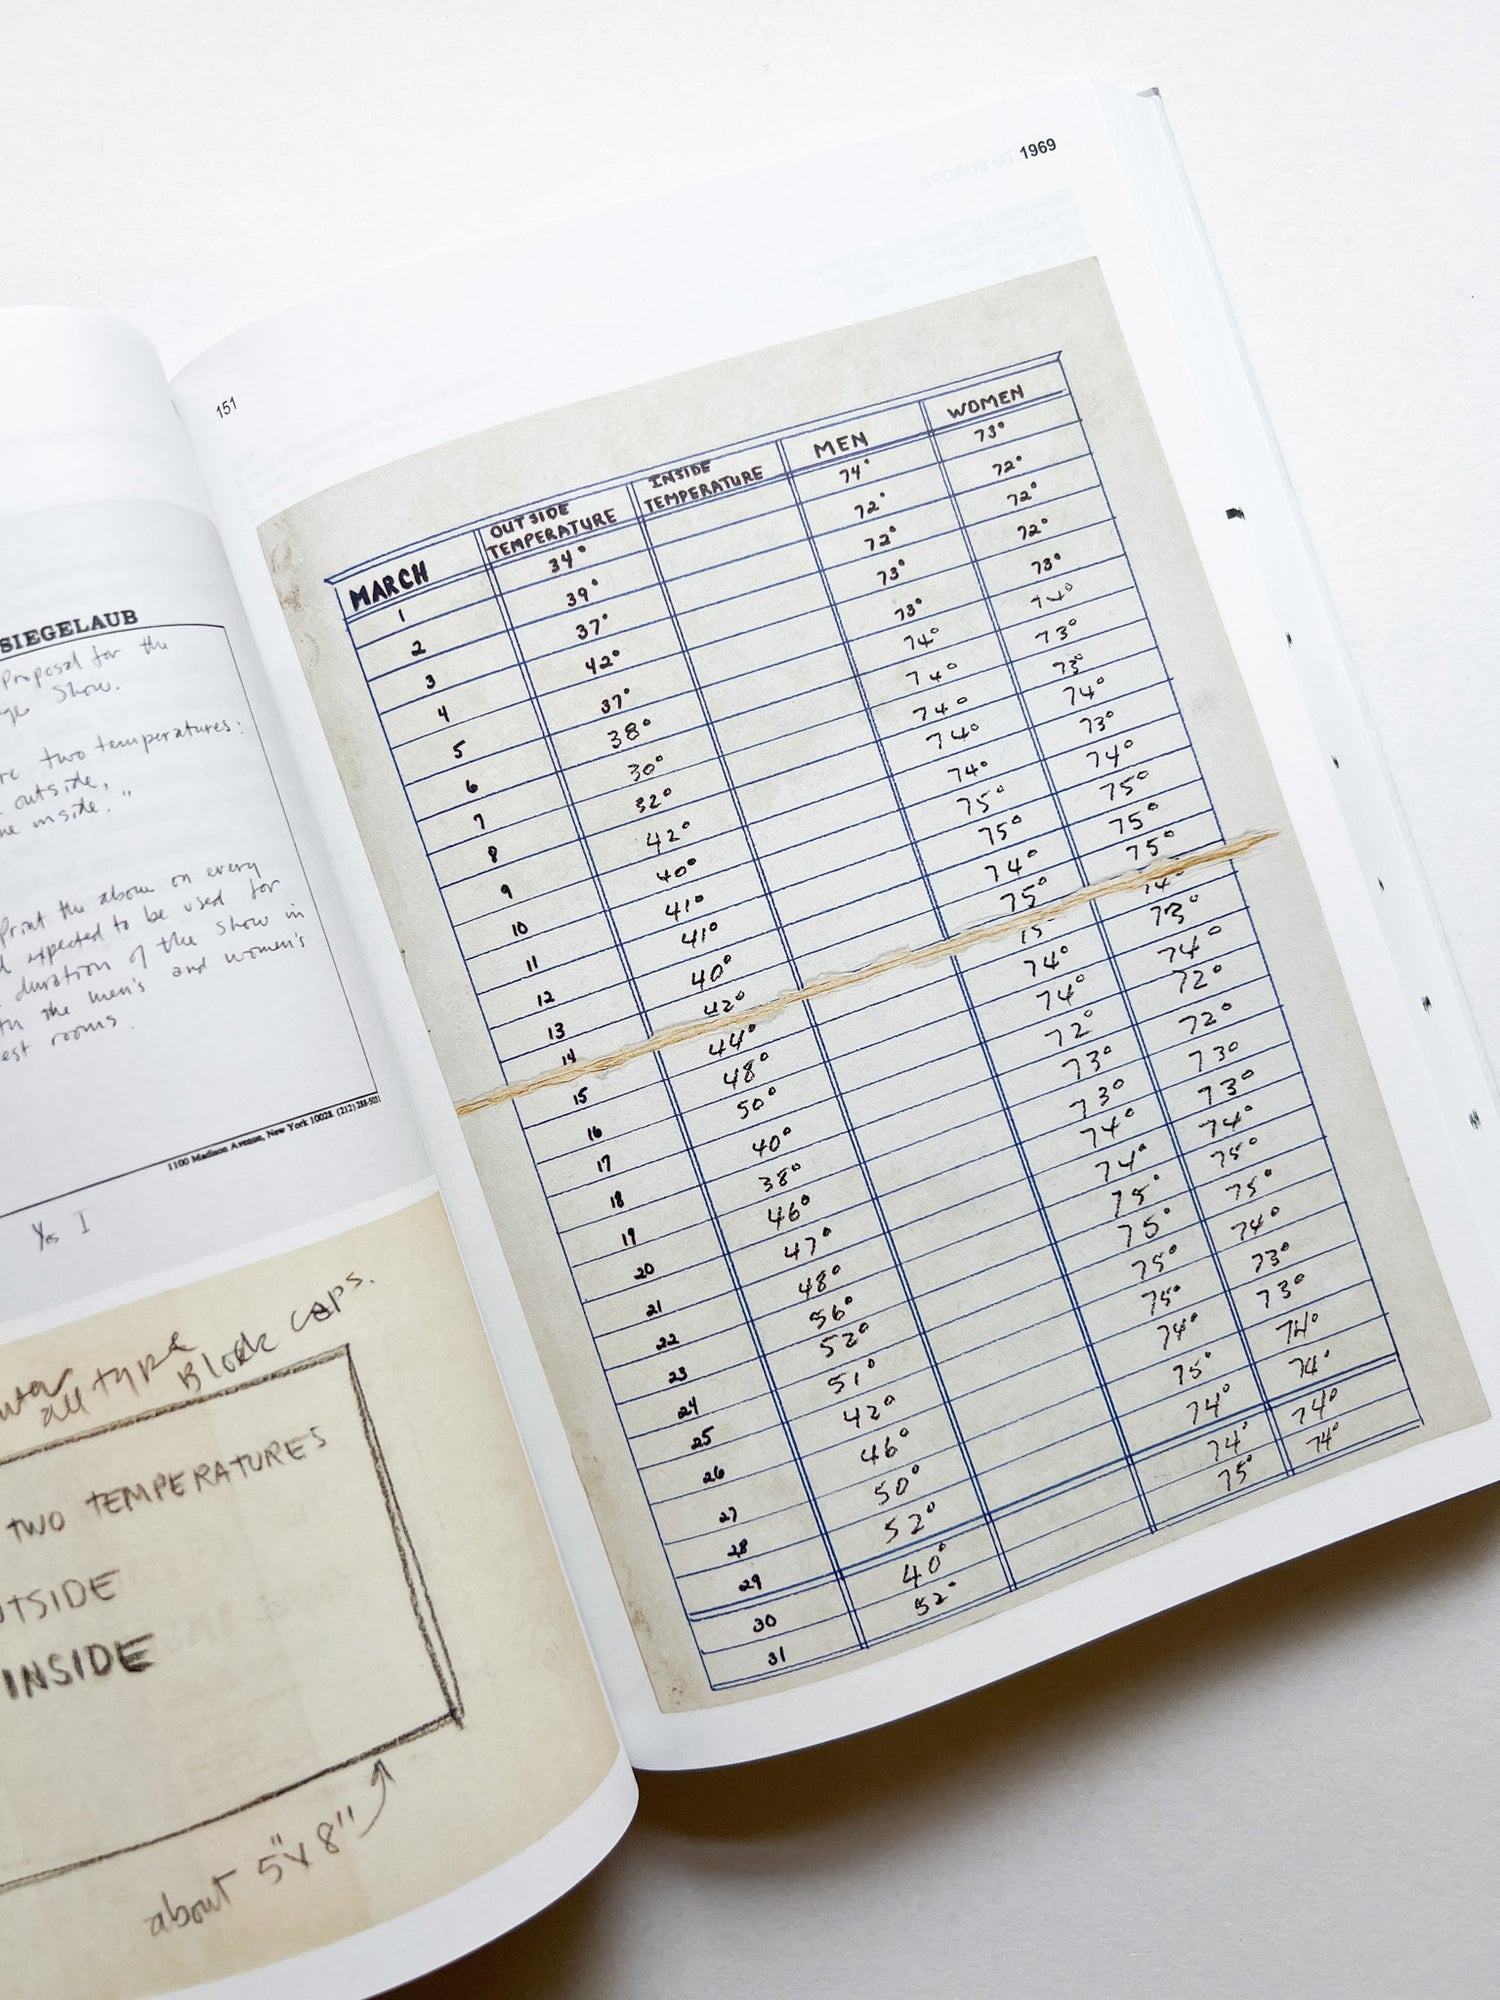 1969
151
MARCH OUTSIDE TEMPERATURE INSIDE TEMPERATURE MEN WOMEN
1 34° 74° 73°
2 39° 72° 72°
3 37° 72° 72°
4 42° 73° 72°
5 37° 73° 73°
6 38° 74° 74°
7 30° 74° 73°
8 32° 74° 73°
9 42° 74° 74°
10 40° 74° 73°
11 41° 75° 74°
12 41° 75° 75°
13 40° 74° 75°
14 42° 75° 75°
15 44° 75 74°
16 48° 74° 73°
17 50° 74° 74°
18 40° 72° 72°
19 38° 73° 72°
20 46° 73° 73°
21 47° 74° 73°
22 48° 74° 74°
23 56° 75° 75°
24 52° 75° 75°
25 51° 75° 74°
26 42° 75° 73°
27 46° 74° 73°
28 50° 75° 74°
29 52° 74° 74°
30 40° 74° 74°
31 52° 75° 74°
SIEGELAUB
Proposal for the
Show.
two temperatures:
outside,
inside."
Print the above on every
expected to be used for
duration of the show in
the men's and women's
rooms.
1100 Madison Avenue, New York 10028 (212) 288-5031
Yes I
all type Block caps.
TWO TEMPERATURES
INSIDE
about 5"x8"